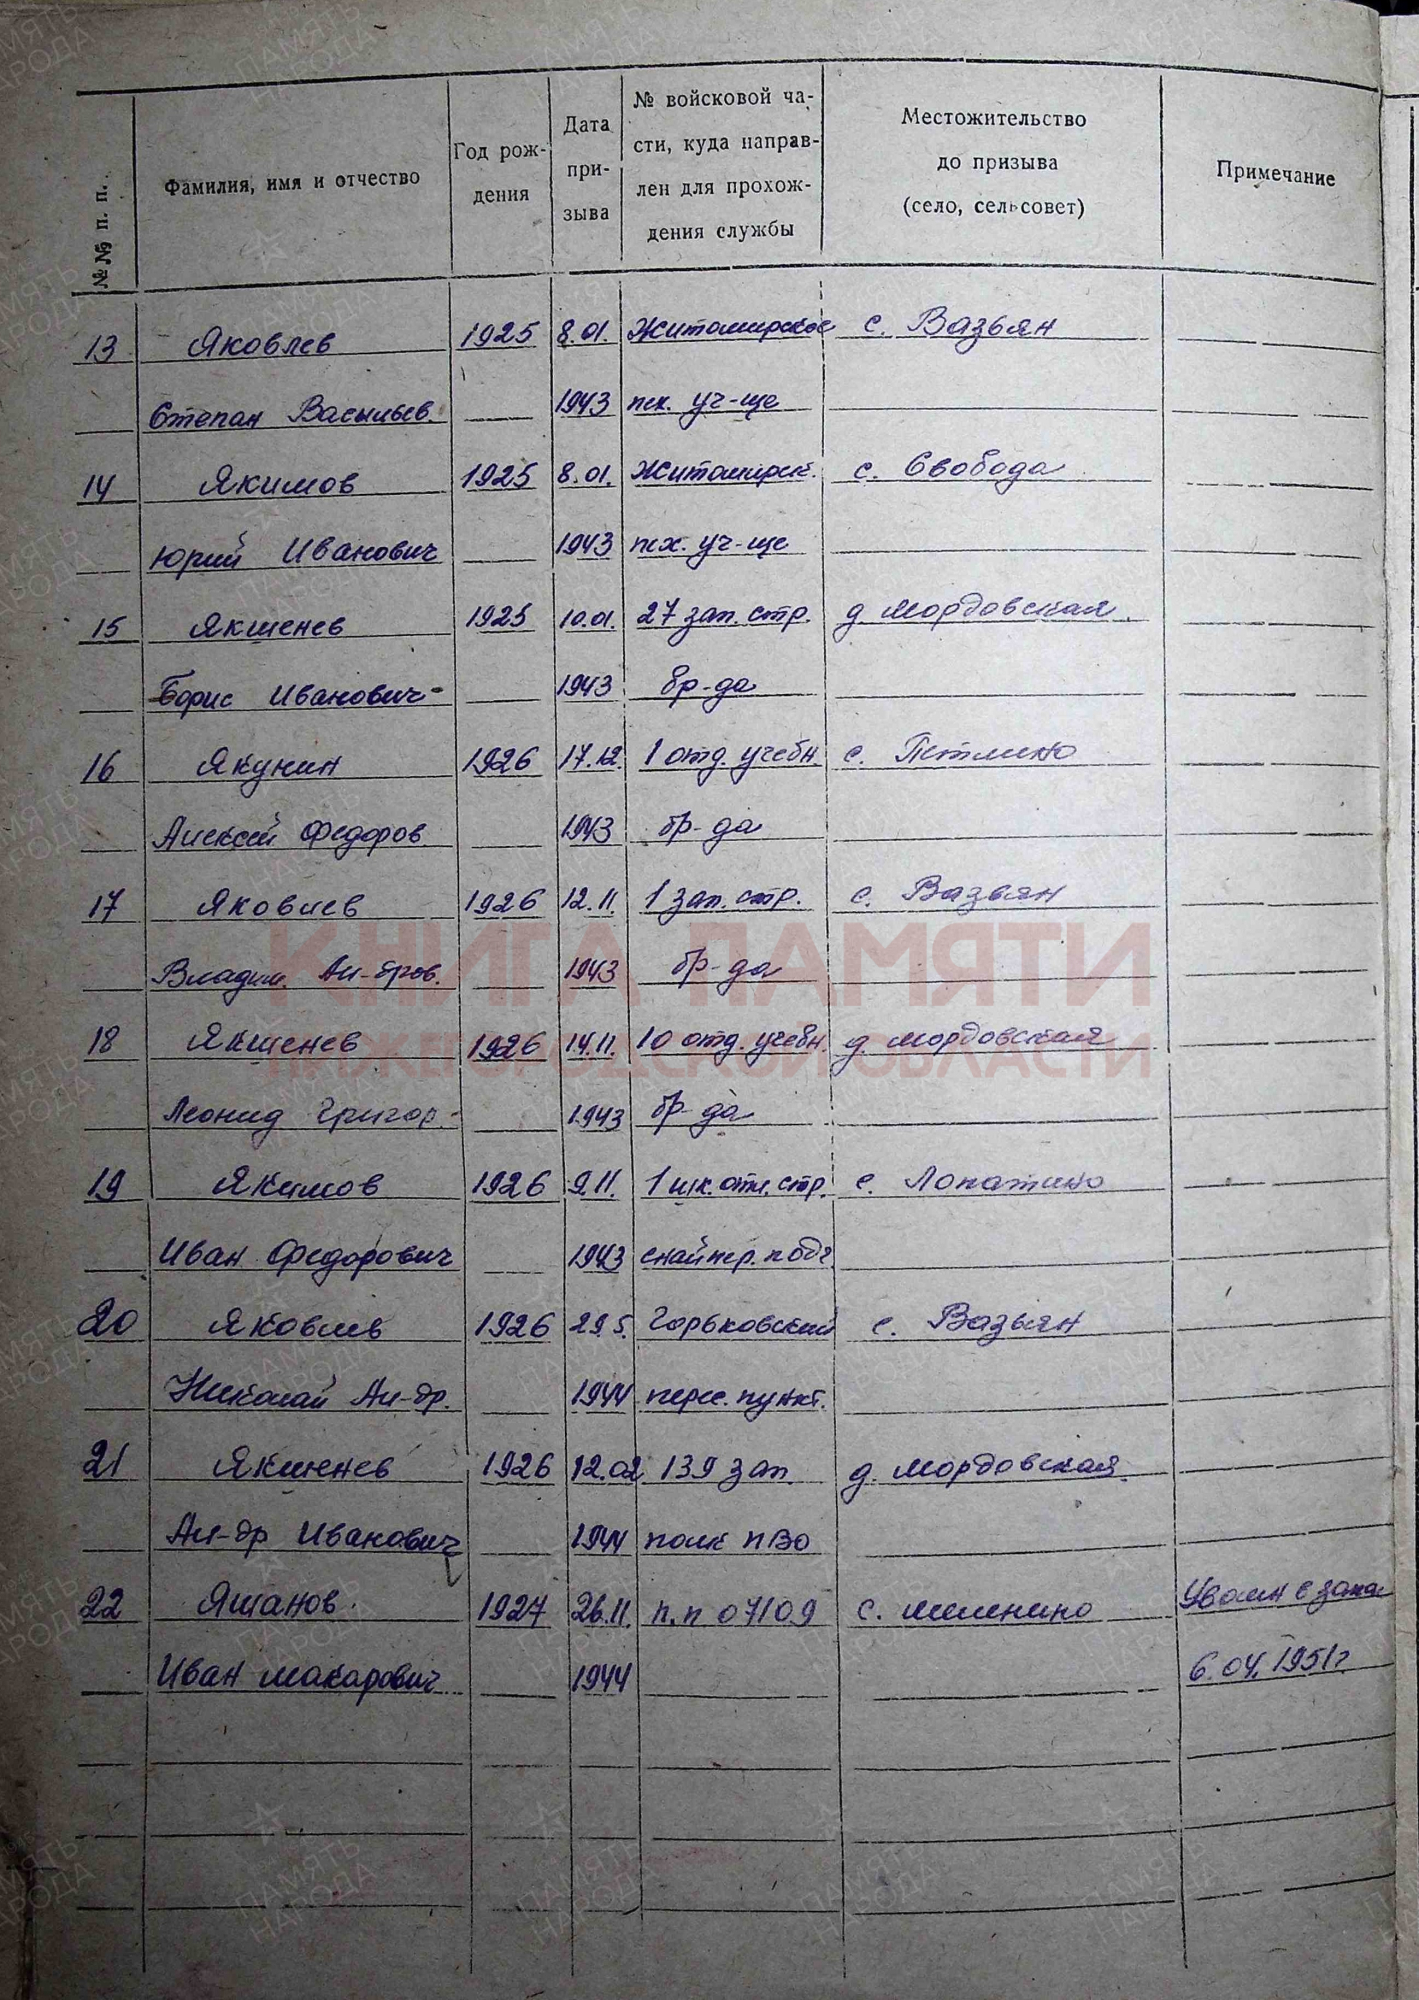 №№ п. п.
Фамилия, имя и отчество
Год рож-
дения
Дата
при-
зыва
№ войсковой ча-
сти, куда направ-
лен для прохож-
дения службы
Местожительство
до призыва
(село, сельсовет)
Примечание
13 Яковлев 1925 8.01. Житомирское с. Вазьян
Степан Васильев. 1943 пех. уч-ще
14 Якимов 1925 8.01. Житомирск. с. Свобода
Юрий Иванович 1943 пех. уч-ще
15 Якшенев 1925 10.01. 27 зап. стр. д. Мордовская
Борис Иванович 1943 бр-да
16 Якунин 1926 17.12. 1 отд. учебн. с. Петлино
Алексей Федоров 1943 бр-да
17 Яковлев 1926 12.11. 1 зап. стр. с. Вазьян
Владим. Ал-дров. 1943 бр-да
18 Якшенев 1926 14.11. 10 отд. учебн. д. Мордовская
Леонид Григор. 1943 бр-да
19 Якимов 1926 9.11. 1 шк. отл. стр. с. Лопатино
Иван Федорович 1943 снайпер. подг.
20 Яковлев 1926 29.5. Горьковский с. Вазьян
Николай Ал-др. 1944 перес. пункт.
21 Якшенев 1926 12.02 139 зап. д. Мордовская
Ал-др Иванович 1944 полк ПВО
22 Яшанов. 1927 26.11. п.п 07109 с. Уволен в запас
Иван Макарович 1944 6.04.1951г
КНИГА ПАМЯТИ
НИЖЕГОРОДСКОЙ ОБЛАСТИ
ПАМЯТЬ
НАРОДА